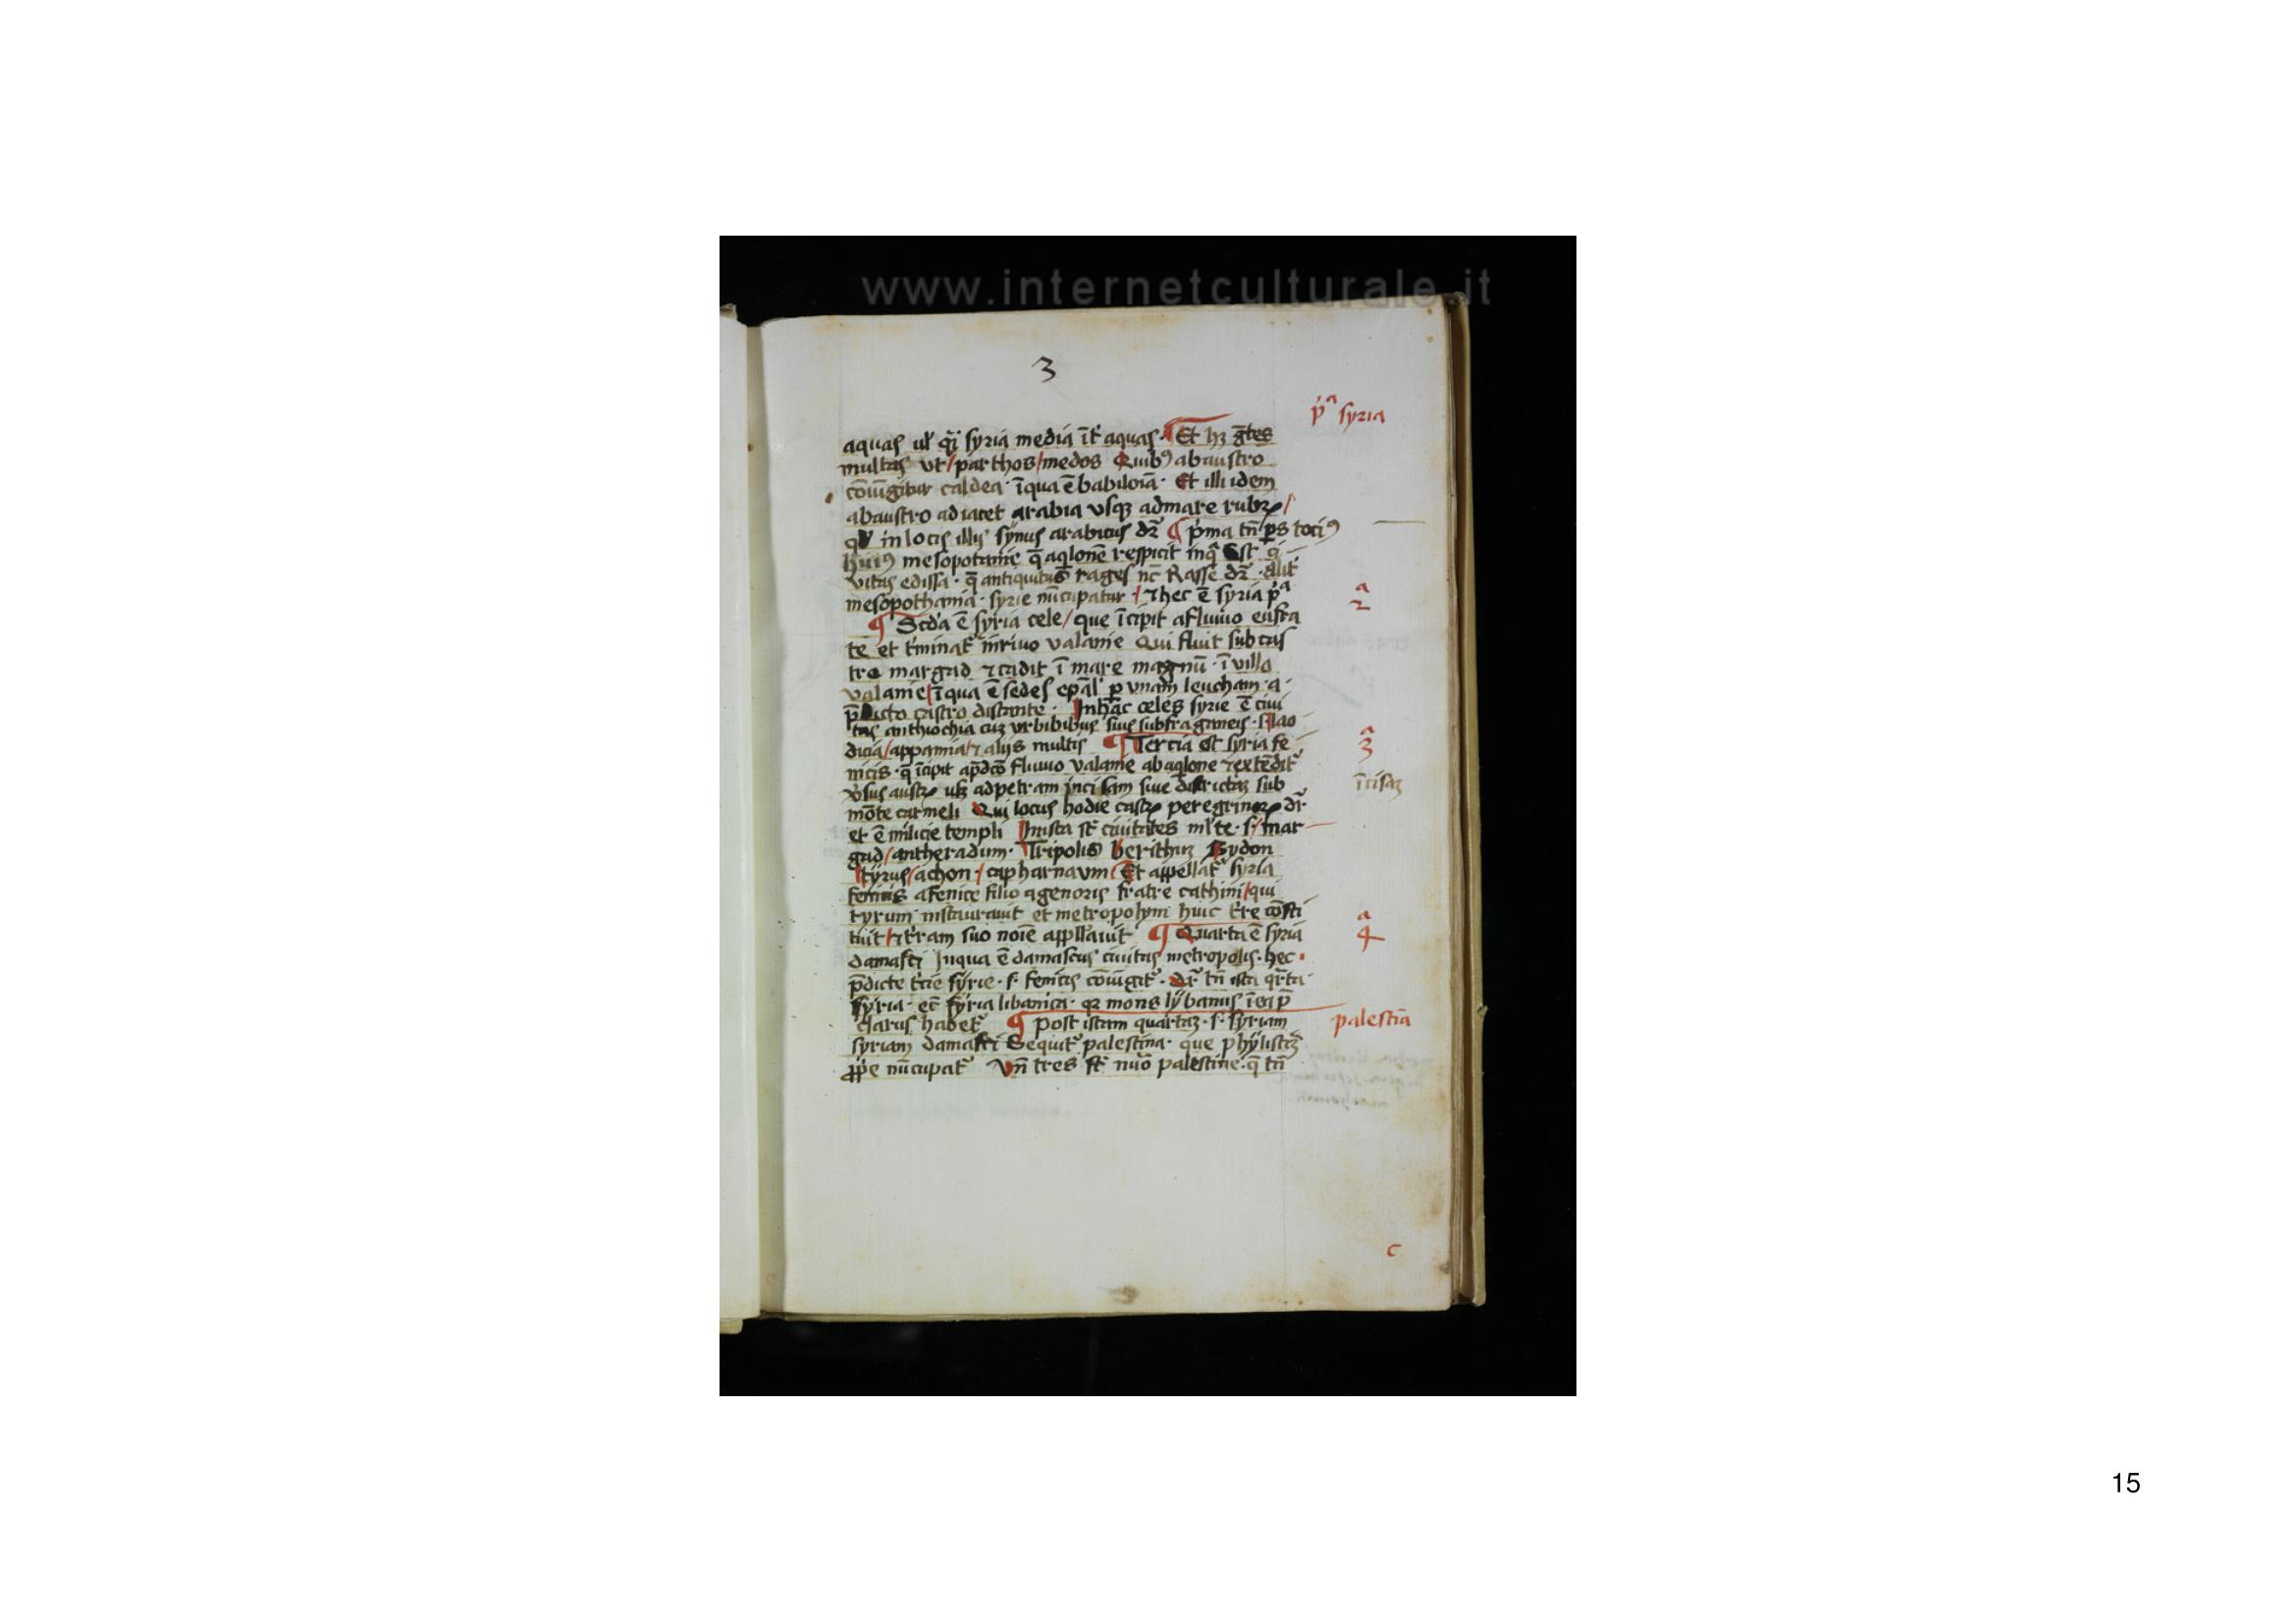 www.internetculturale.it
3
pᵃ syria
aquas ul' syria media īt' aquas · Et hȝ gētes
multas vt / parthos / medos Quibꝰ abaustro
cōiūgitur caldea · ī qua ē babiloīa · Et illi idem
abaustro adiacet arabia vsqȝ admare rubrꝝ /
in locis illis synus arabicus dr̄ ¶ p'ma tn̄ ꝑs tociꝰ
huiꝰ mesopotamie q̄ aqlonē respicit inq̄ Est ci
vitas edissa · q̄ antiquitus rages nc̄ Rasse dr̄ · alit'
mesopothamia · syrie nūcupatur · / ⁊ hec ē syria pᵃ
2ᵃ
¶ Scd'a ē syria cele / que īcipit afluuio eufra
te et t'minat' inriuo valanie Qui fluit sub cas
tro margad ⁊ cadit ī mare magnū · ī villa
valanie / ī qua ē sedes ep̄al' ꝑ vnam leucham · a ·
p̄dicto castro distante · In hac celes syrie ē ciui
tas anthiochia cuȝ vrbibibus suis subfraganeis · s / lao
dicia / appamia / ⁊ aliis multis ¶ Tercia est syria fe
3ᵃ
nicis · q̄ īcipit apd̄co fluuio valanie abaqlone ⁊ extēdit'
īcisaȝ
v'sus austrꝝ usqȝ adpetram incisam siue districtaȝ sub
mōte carmeli Qui locus hodie castrꝝ peregrinorꝝ dr̄
et ē milicie templi In ista st̄ ciuitates ml'te · s · / mar
gad / antheradum · Tripolis berithuȝ Sydon
tyrus / achon · / capharnaum / Et appellat' syria
fenicis afenice filio agenoris fratre cathini / qui
tyrum instaurauit et metropolym huic t're cōsti
tuit / ⁊ t'ram suo noīe appllauit ¶ Quarta ē syria
4ᵃ
damasci In qua ē damascus ciuitas metropolis · hec ·
p̄dicte t'cie syrie · s · fenicis cōiūgit' · dr̄ tn̄ ista qr̄ta
syria · ec̄ syria libanica · qȝ mons lybanus ī ea p̄
clarus habet' ¶ post istam quartaȝ · s · syriam
palestīa
syriam damasci Sequit' palestina · que phylistiȝ
ꝓp'e nūcupat' Vn̄ tres st̄ nūo palestine · q̄ tn̄
c
15